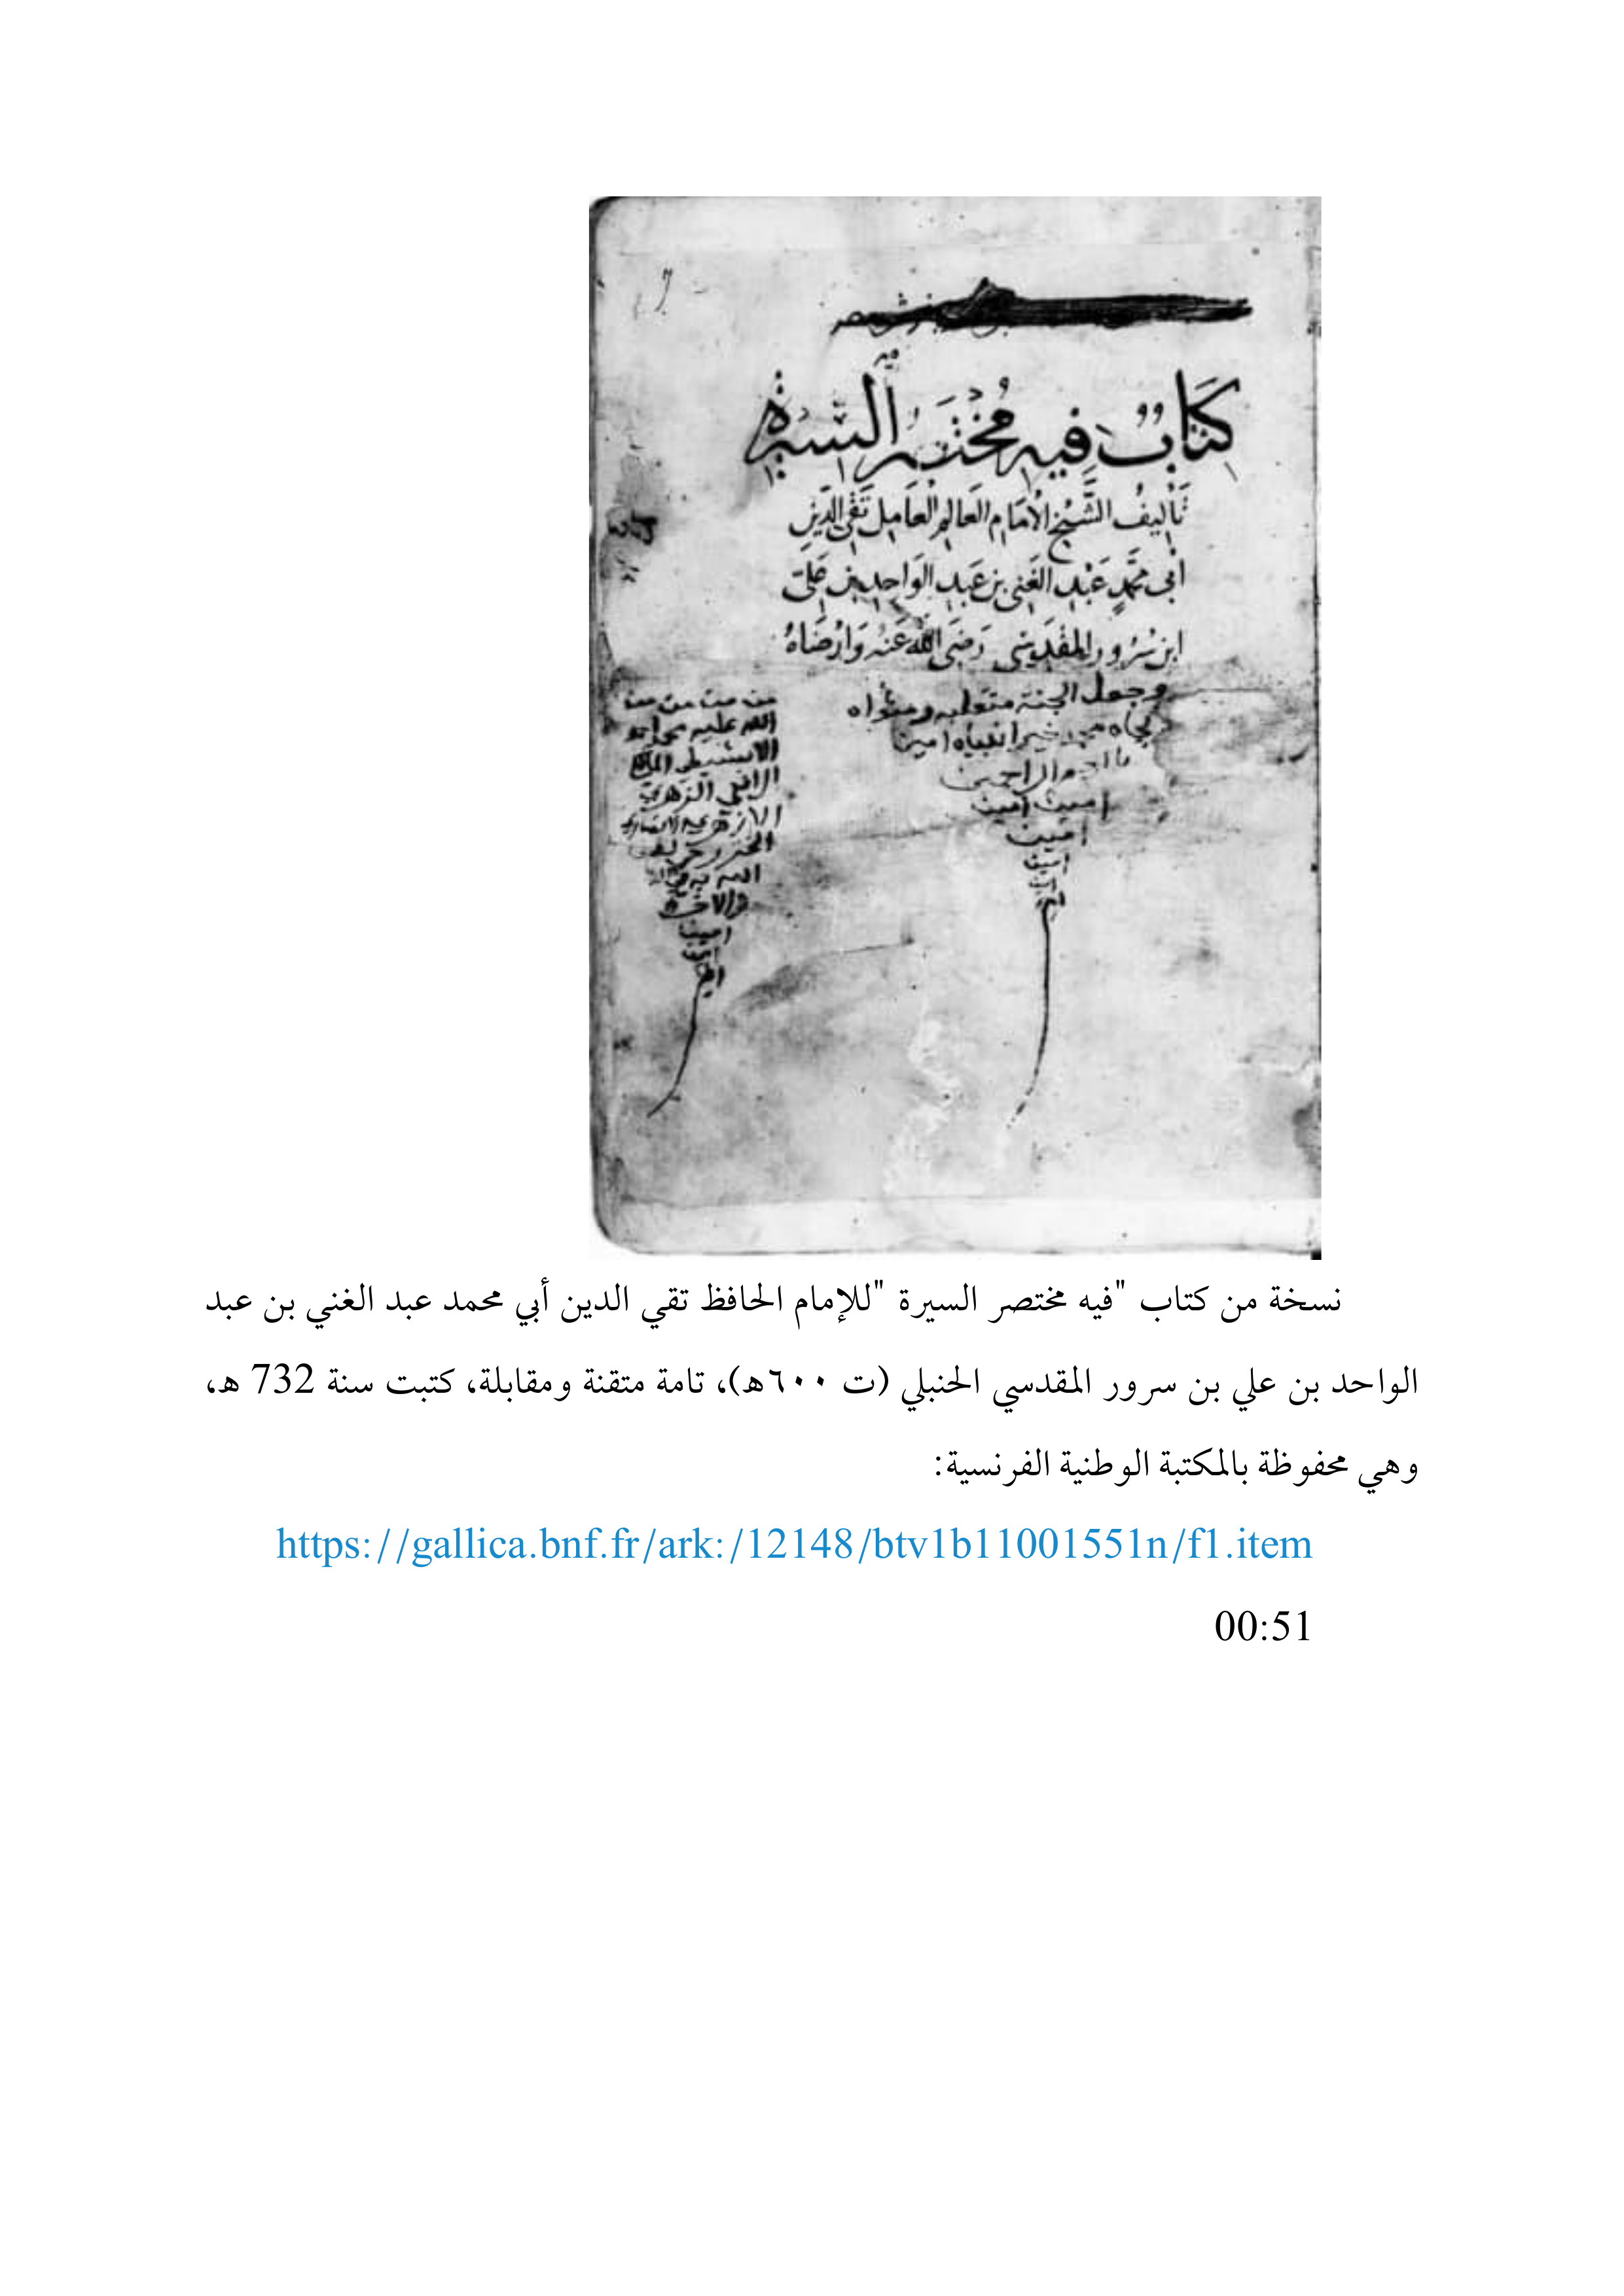 كِتَابٌ فِيهِ مُخْتَصَرُ السِّيرَةِ
تَأْلِيفُ الشَّيْخِ الْإِمَامِ الْعَالِمِ الْعَامِلِ تَقِيِّ الدِّينِ
أَبِي مُحَمَّدٍ عَبْدِ الْغَنِيِّ بْنِ عَبْدِ الْوَاحِدِ بْنِ عَلِيٍّ
ابْنِ سُرُورٍ الْمَقْدِسِيِّ رَضِيَ اللهُ عَنْهُ وَأَرْضَاهُ
وجعل الجنة متقلبه ومثواه
بجاه محمد خير انبياه امين
يا ارحم الراحمين
امين امين
امين
امين
الله عليه محمد
الازهري
والاخره
امين
نسخة من كتاب "فيه مختصر السيرة "للإمام الحافظ تقي الدين أبي محمد عبد الغني بن عبد
الواحد بن علي بن سرور المقدسي الحنبلي (ت ٦٠٠هـ)، تامة متقنة ومقابلة، كتبت سنة 732 هـ،
وهي محفوظة بالمكتبة الوطنية الفرنسية:
https://gallica.bnf.fr/ark:/12148/btv1b11001551n/f1.item
00:51